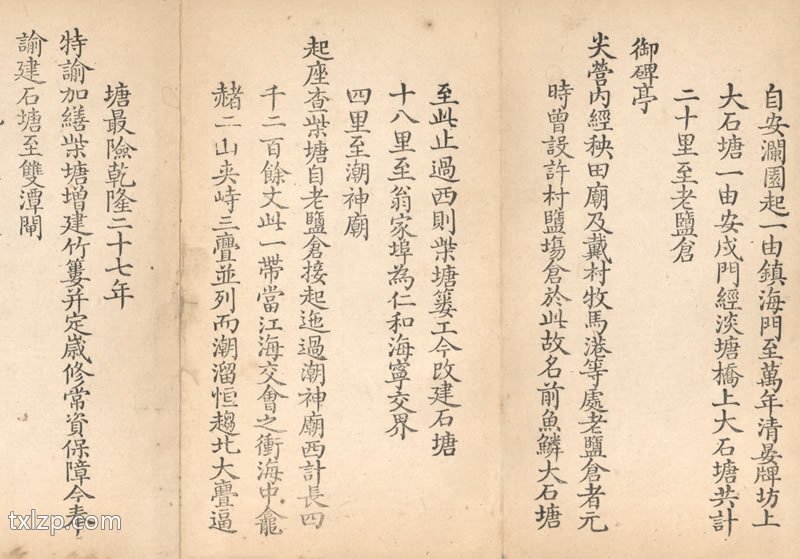 自安瀾園起一由鎮海門至萬年清晏牌坊上
大石塘一由安戍門經淡塘橋上大石塘共計
二十里至老鹽倉
御碑亭
尖營內經秧田廟及戴村牧馬港等處老鹽倉者元
時曾設許村鹽塲倉於此故名前魚鱗大石塘
至此止過西則柴塘簍工今改建石塘
十八里至翁家埠為仁和海寧交界
四里至潮神廟
起座查柴塘自老鹽倉接起迤過潮神廟西計長四
千二百餘丈此一帶當江海交會之衝海中龕
赭二山夾峙三亹並列而潮溜恒趨北大亹逼
塘最險乾隆二十七年
特諭加繕柴塘增建竹簍并定歲修常資保障今奉
諭建石塘至雙潭閘
txlzp.com
txlzp.com